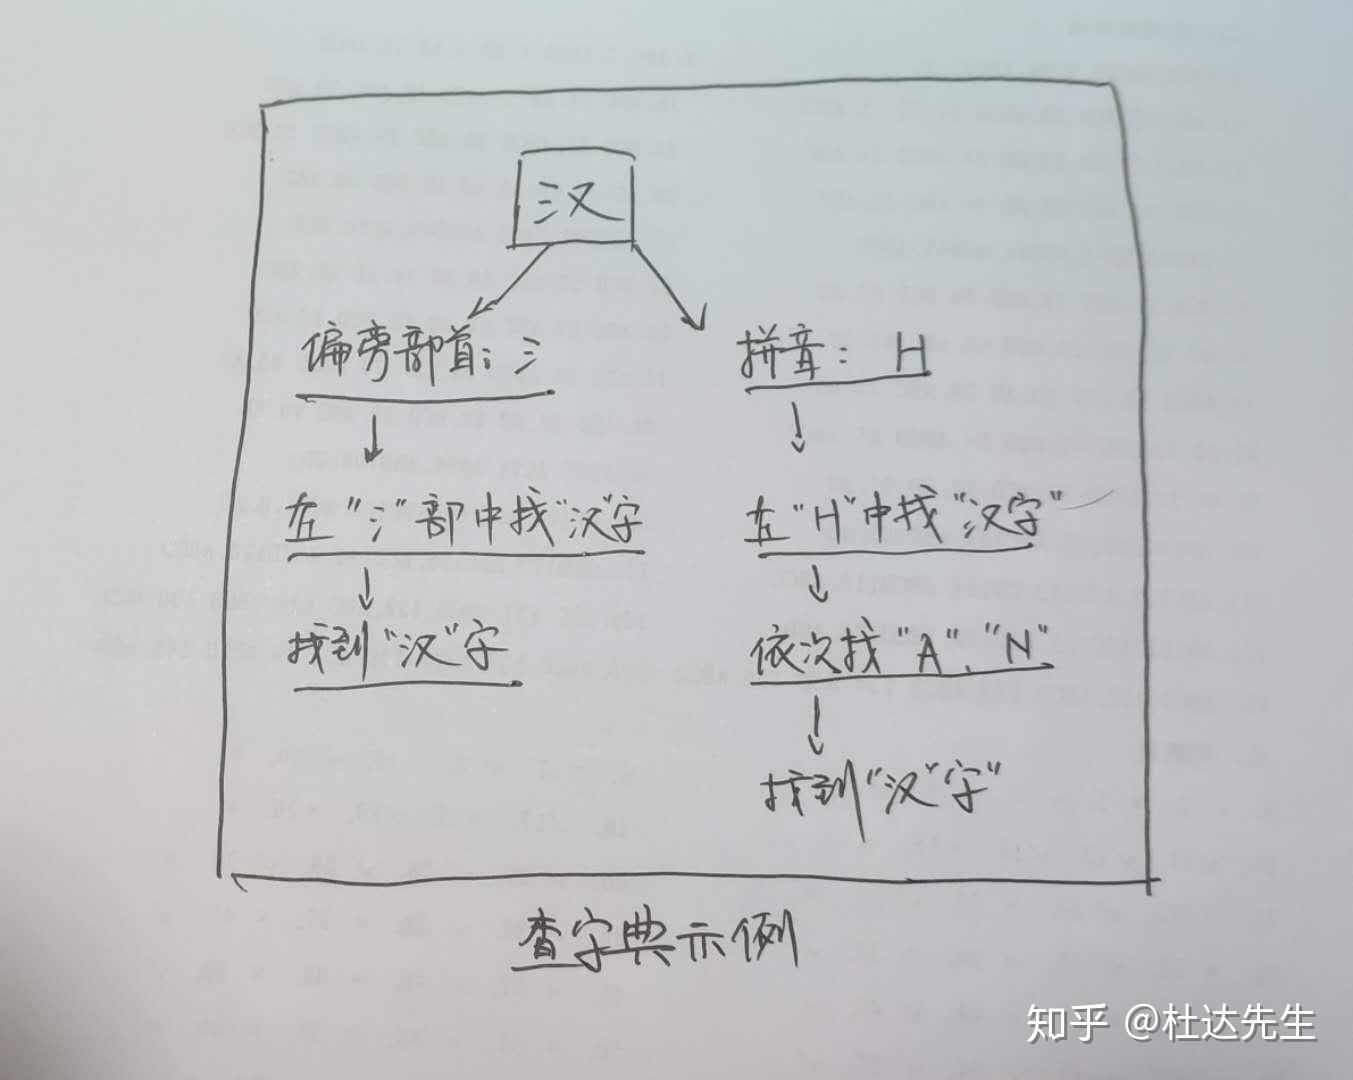 汉
偏旁部首：氵
拼音： H
在"氵"部中找"汉"字
在"H"中找"汉字"
找到"汉"字
依次找"A"、"N"
找到"汉"字"
查字典示例
知乎 @杜达先生